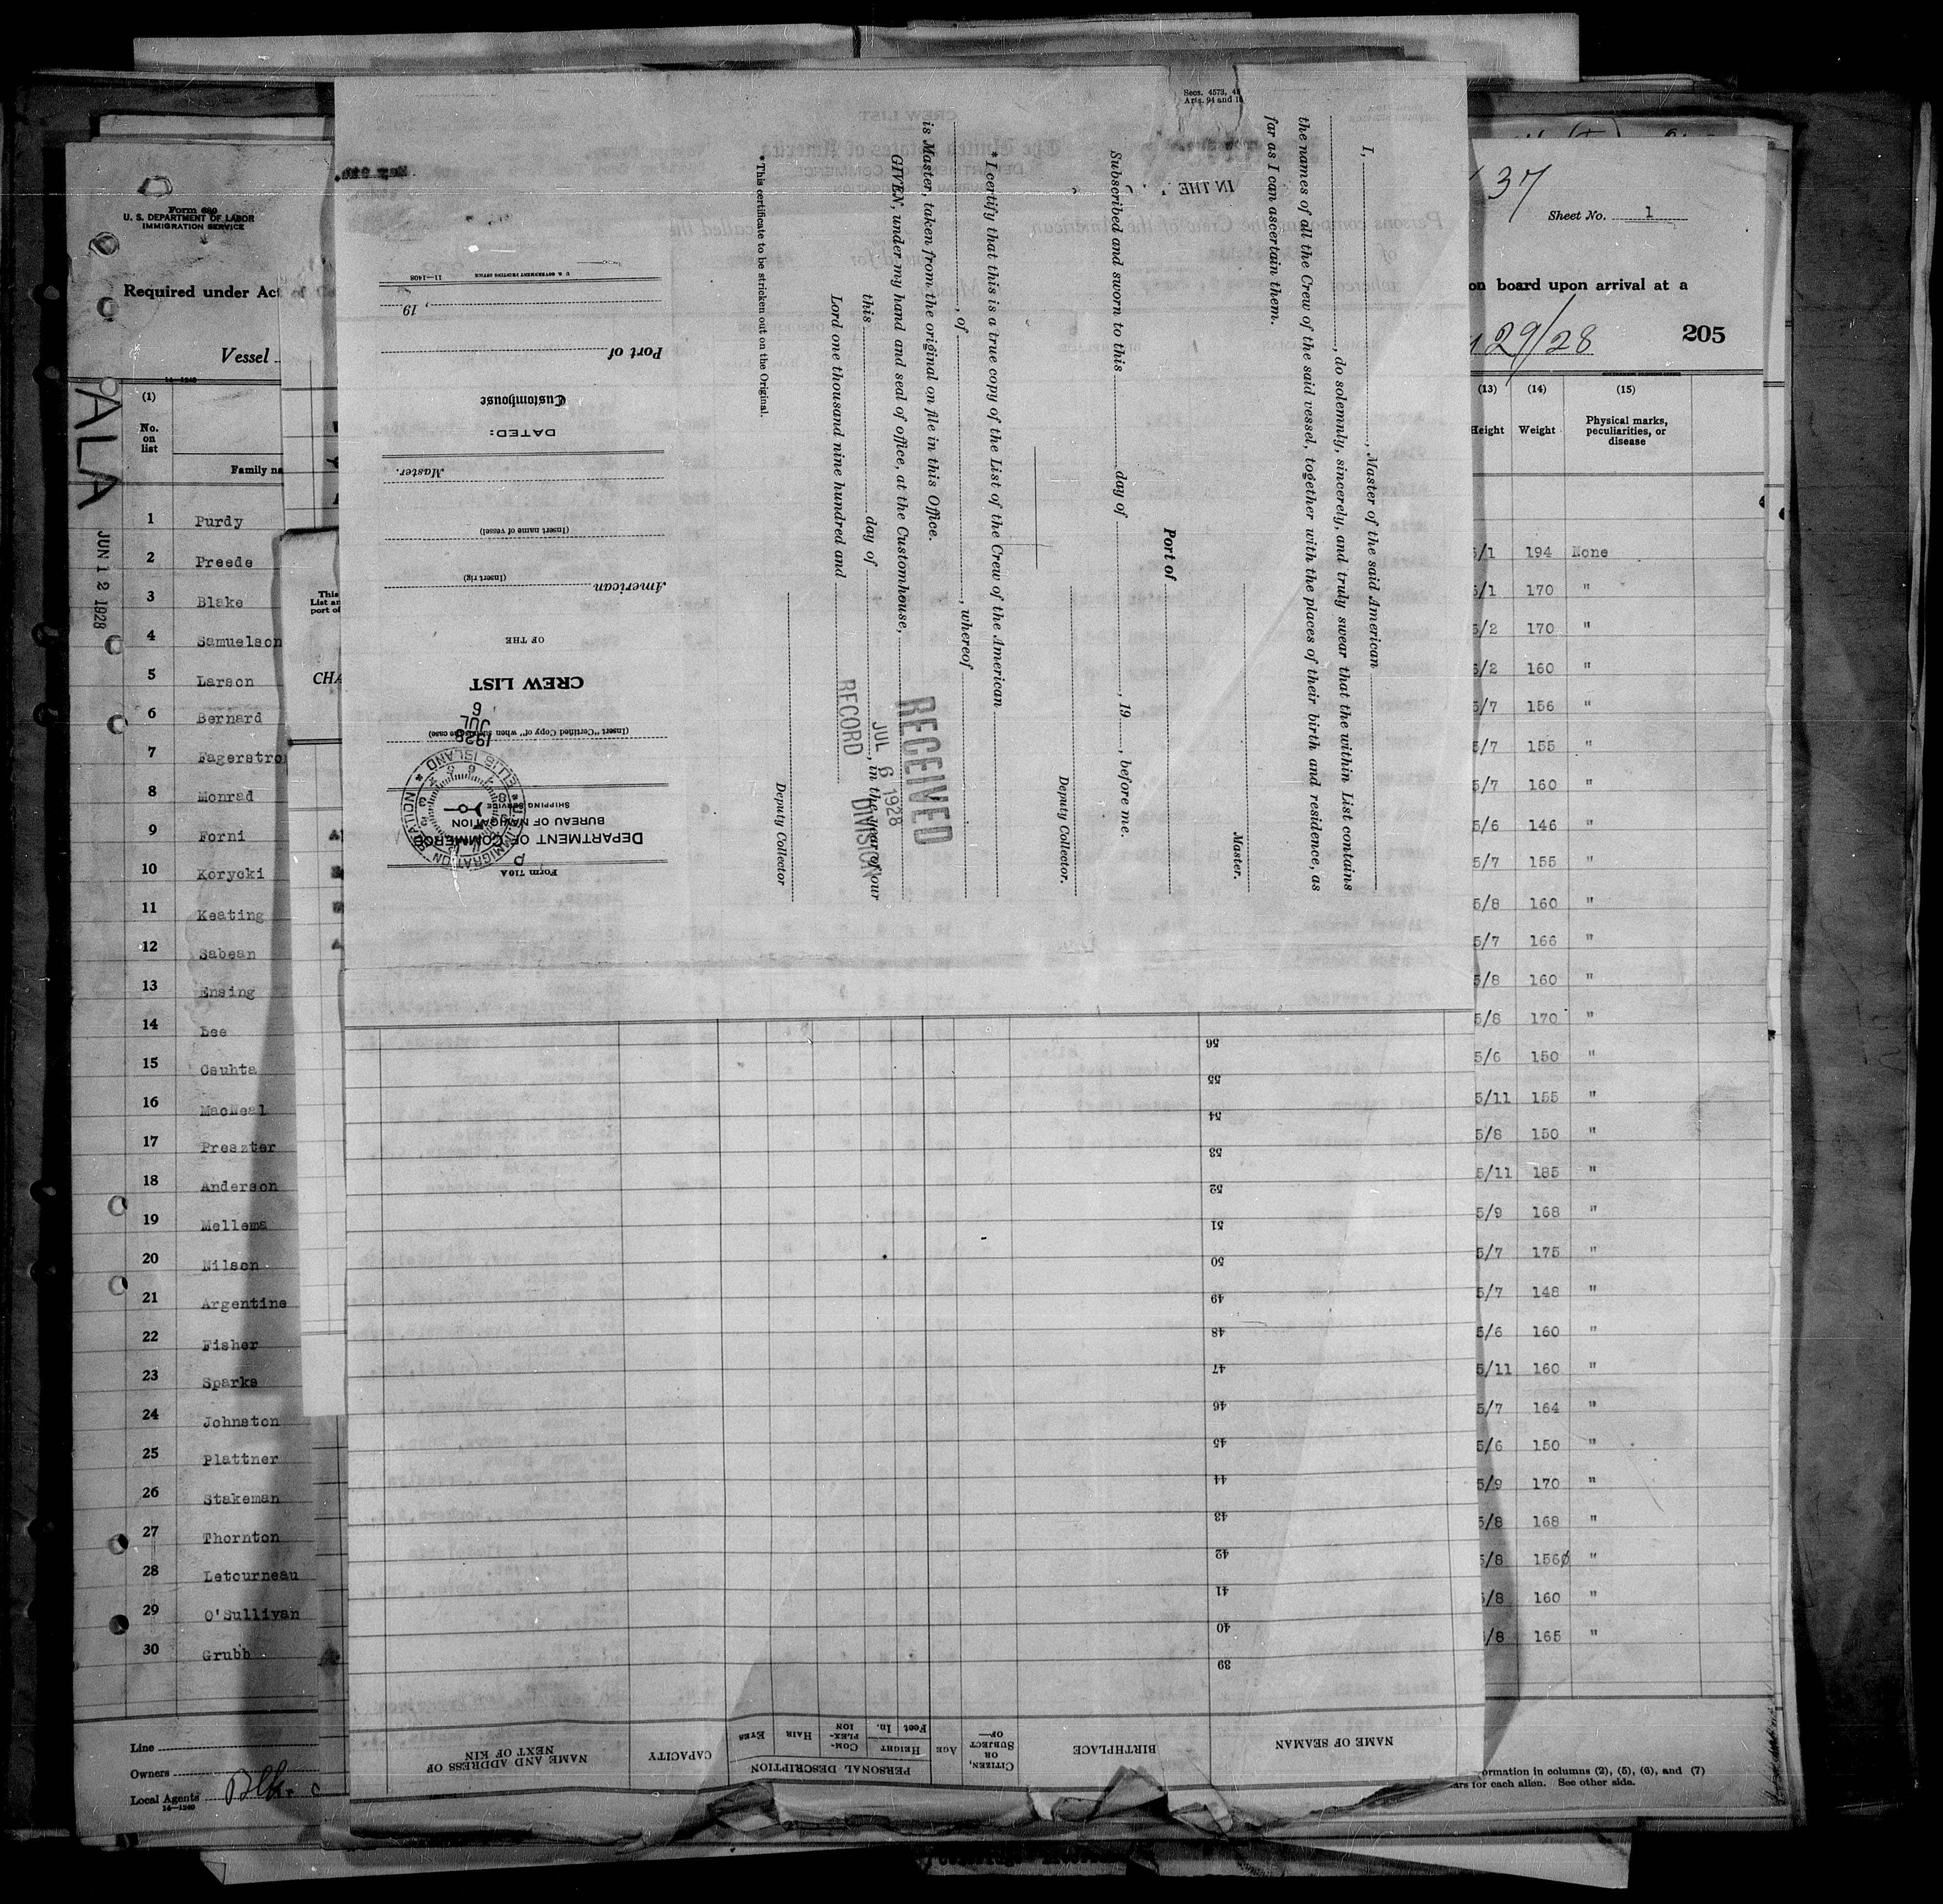 Form 680
U. S. DEPARTMENT OF LABOR
IMMIGRATION SERVICE
Required under Act
Vessel
14—1240
(1)
No.
on
list
Family na
ALA
JUN 12 1928
1 Purdy
2 Preede
3 Blake
4 Samuelson
5 Larson
6 Bernard
7 Fagerstro
8 Monrad
9 Forni
10 Korycki
11 Keating
12 Sabean
13 Ensing
14 Lee
15 Csuhta
16 MacNeal
17 Preszter
18 Anderson
19 Mellema
20 Nilson
21 Argentine
22 Fisher
23 Sparks
24 Johnston
25 Plattner
26 Stakeman
27 Thornton
28 Letourneau
29 O'Sullivan
30 Grubb
Line
Owners
Local Agents
14—1240
This
List an
port of
CHA
37
Sheet No. 1
on board upon arrival at a
29/28
205
(13) (14) (15)
Height Weight Physical marks,
peculiarities, or
disease
5/1 194 None
5/1 170 "
5/2 170 "
5/2 160 "
5/7 156 "
5/7 155 "
5/7 160 "
5/6 146 "
5/7 155 "
5/8 160 "
5/7 166 "
5/8 160 "
5/8 170 "
5/6 150 "
5/11 155 "
5/8 150 "
5/11 185 "
5/9 168 "
5/7 175 "
5/7 148 "
5/6 160 "
5/11 160 "
5/7 164 "
5/6 150 "
5/9 170 "
5/8 168 "
5/8 1560 "
5/8 160 "
5/8 165 "
ormation in columns (2), (5), (6), and (7)
ars for each alien. See other side.
Secs. 4573, 45
Arts. 94 and 1
I, , Master of the said American
, do solemnly, sincerely, and truly swear that the within List contains
the names of all the Crew of the said vessel, together with the places of their birth and residence, as
far as I can ascertain them.
IN THE
Master.
Port of
Subscribed and sworn to this day of , 19 , before me.
Deputy Collector.
* I certify that this is a true copy of the List of the Crew of the American
, of , whereof
is Master, taken from the original on file in this Office.
GIVEN, under my hand and seal of office, at the Customhouse,
this day of , in the year of our
Lord one thousand nine hundred and
Deputy Collector
*This certificate to be stricken out on the Original.
RECEIVED
JUL 6 1928
RECORD DIVISION
Form 710A
DEPARTMENT OF COMMERCE
BUREAU OF NAVIGATION
SHIPPING SERVICE
ELLIS ISLAND
IMMIGRATION
1928
JUL
6
(Insert "Certified Copy of" when such is the case)
CREW LIST
OF THE
American
(Insert rig)
(Insert name of vessel)
Master.
DATED:
Customhouse
Port of
, 19
U. S. GOVERNMENT PRINTING OFFICE 11—1408
NAME OF SEAMAN
BIRTHPLACE
CITIZEN,
OR
SUBJECT
OF—
AGE
PERSONAL DESCRIPTION
HEIGHT
Feet In.
COM-
PLEX-
ION
HAIR
EYES
CAPACITY
NAME AND ADDRESS OF
NEXT OF KIN
39
40
41
42
43
44
45
46
47
48
49
50
51
52
53
54
55
56